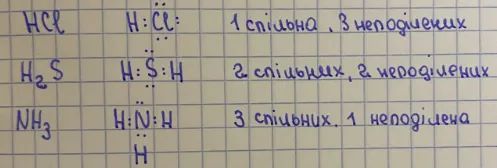 HCl H:C̤̈l: 1 спільна, 3 неподілених
H₂S H:S̤̈:H 2 спільних, 2 неподілених
NH₃ H:N̤̈:H 3 спільних, 1 неподілена
H